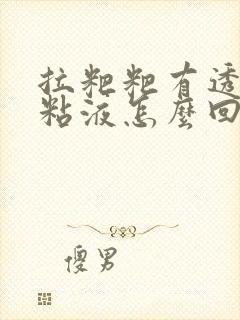 拉粑粑有透
粘液怎麼回
傻男